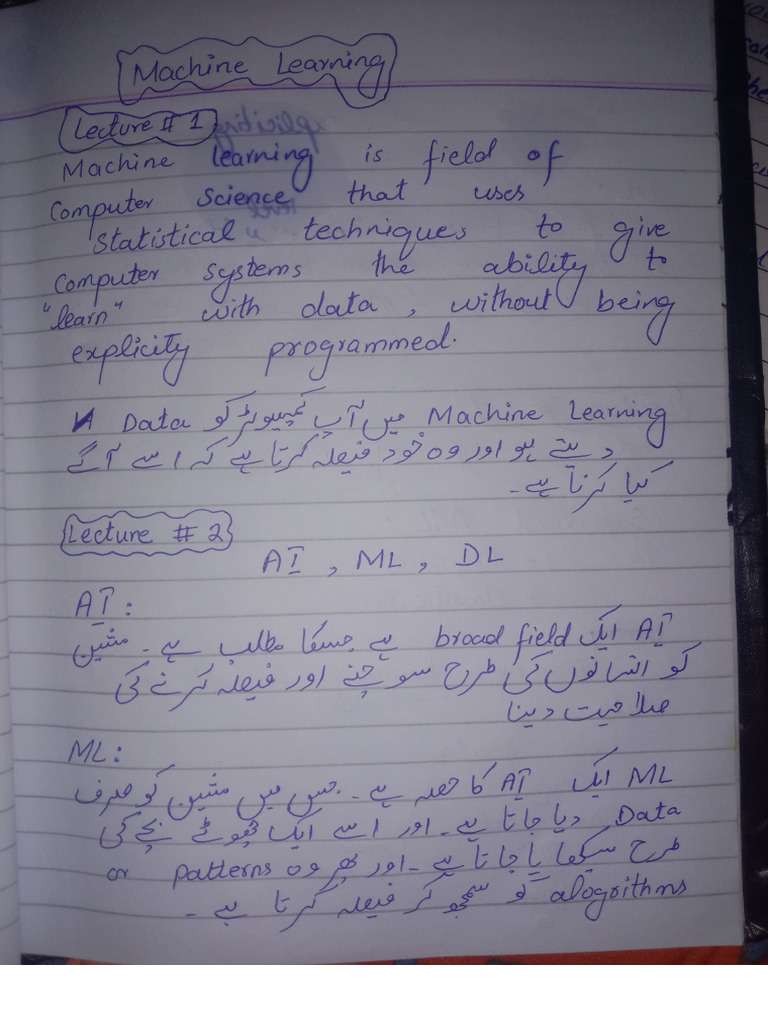 Machine Learning
Lecture # 1
Machine learning is field of
Computer Science that uses
statistical techniques to give
Computer systems the ability to
"learn" with data, without being
explicity programmed.
Machine Learning میں آپ کمپیوٹر کو Data
دیتے ہو اور وہ خود فیصلہ کرتا ہے کہ اسے آگے
کیا کرنا ہے۔
Lecture # 2
AI, ML, DL
AI:
AI ایک broad field ہے جسکا مطلب ہے۔ مشین
کو انسانوں کی طرح سوچنے اور فیصلہ کرنے کی
صلاحیت دینا
ML:
ML ایک AI کا حصہ ہے۔ جس میں مشین کو صرف
Data دیا جاتا ہے۔ اور اسے ایک چھوٹے بچے کی
طرح سیکھایا جاتا ہے۔ اور پھر وہ patterns or
alogrithms کو سمجھ کر فیصلہ کرتا ہے۔